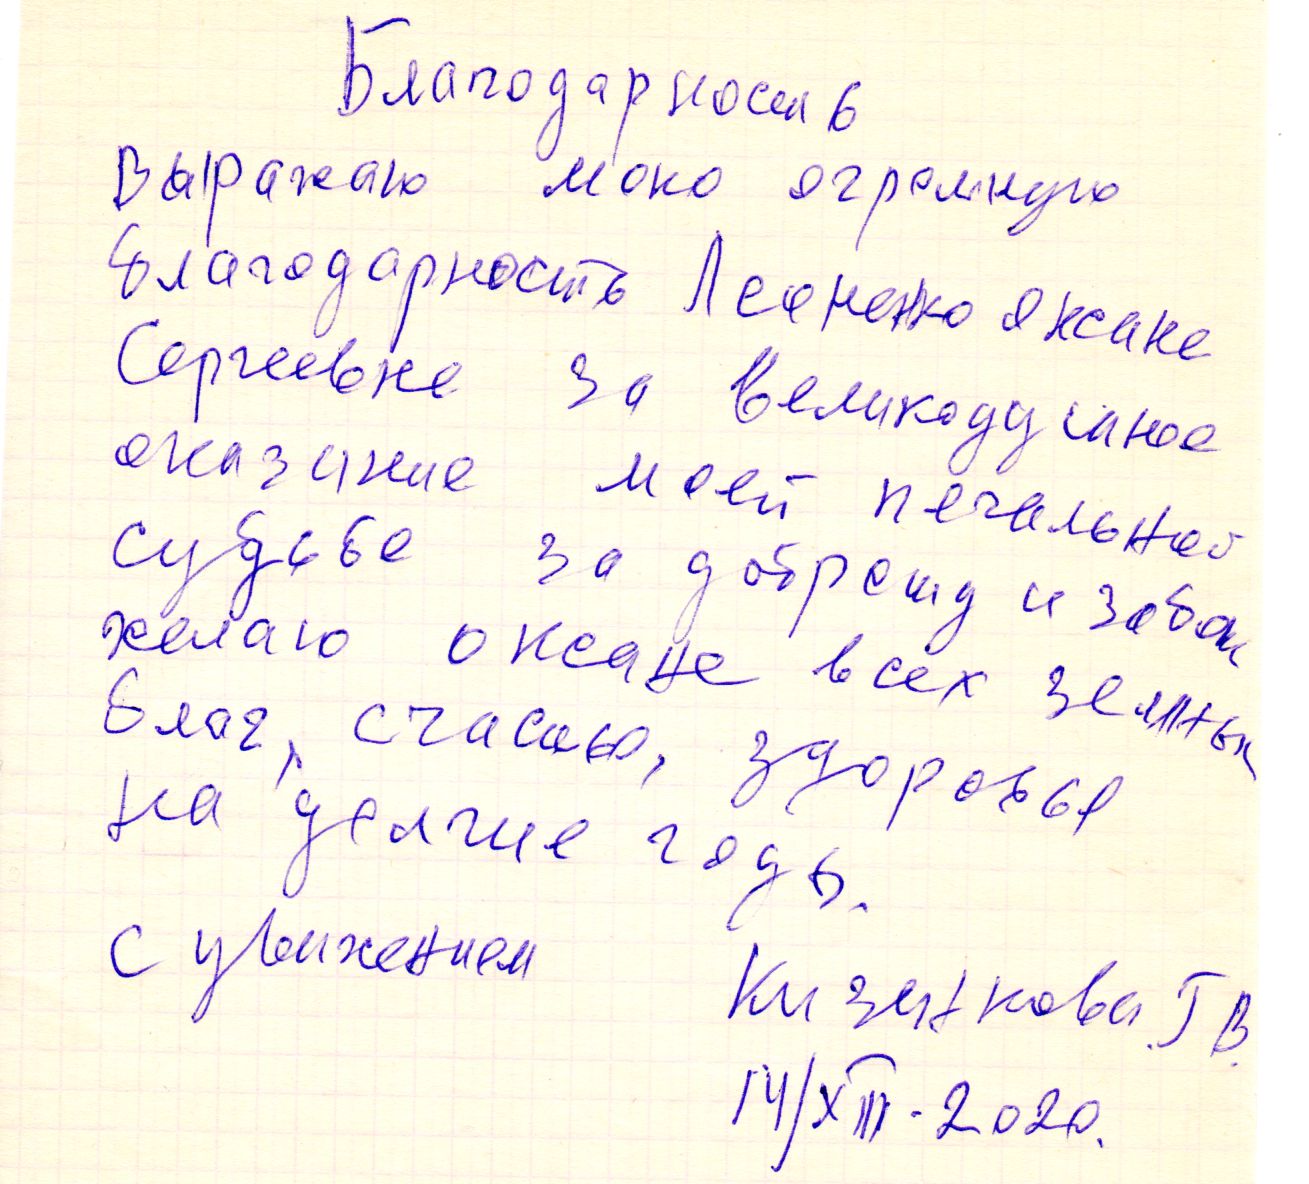 Благодарность
Выражаю мою огромную
благодарность Леоненко Оксане
Сергеевне за великодушное
оказание моей печальной
судьбе за доброту и забот
желаю Оксане всех земных
благ, счастью, здоровье
на долгие годы.
с уважением
Кизянкова. Г В.
14/XII-2020.